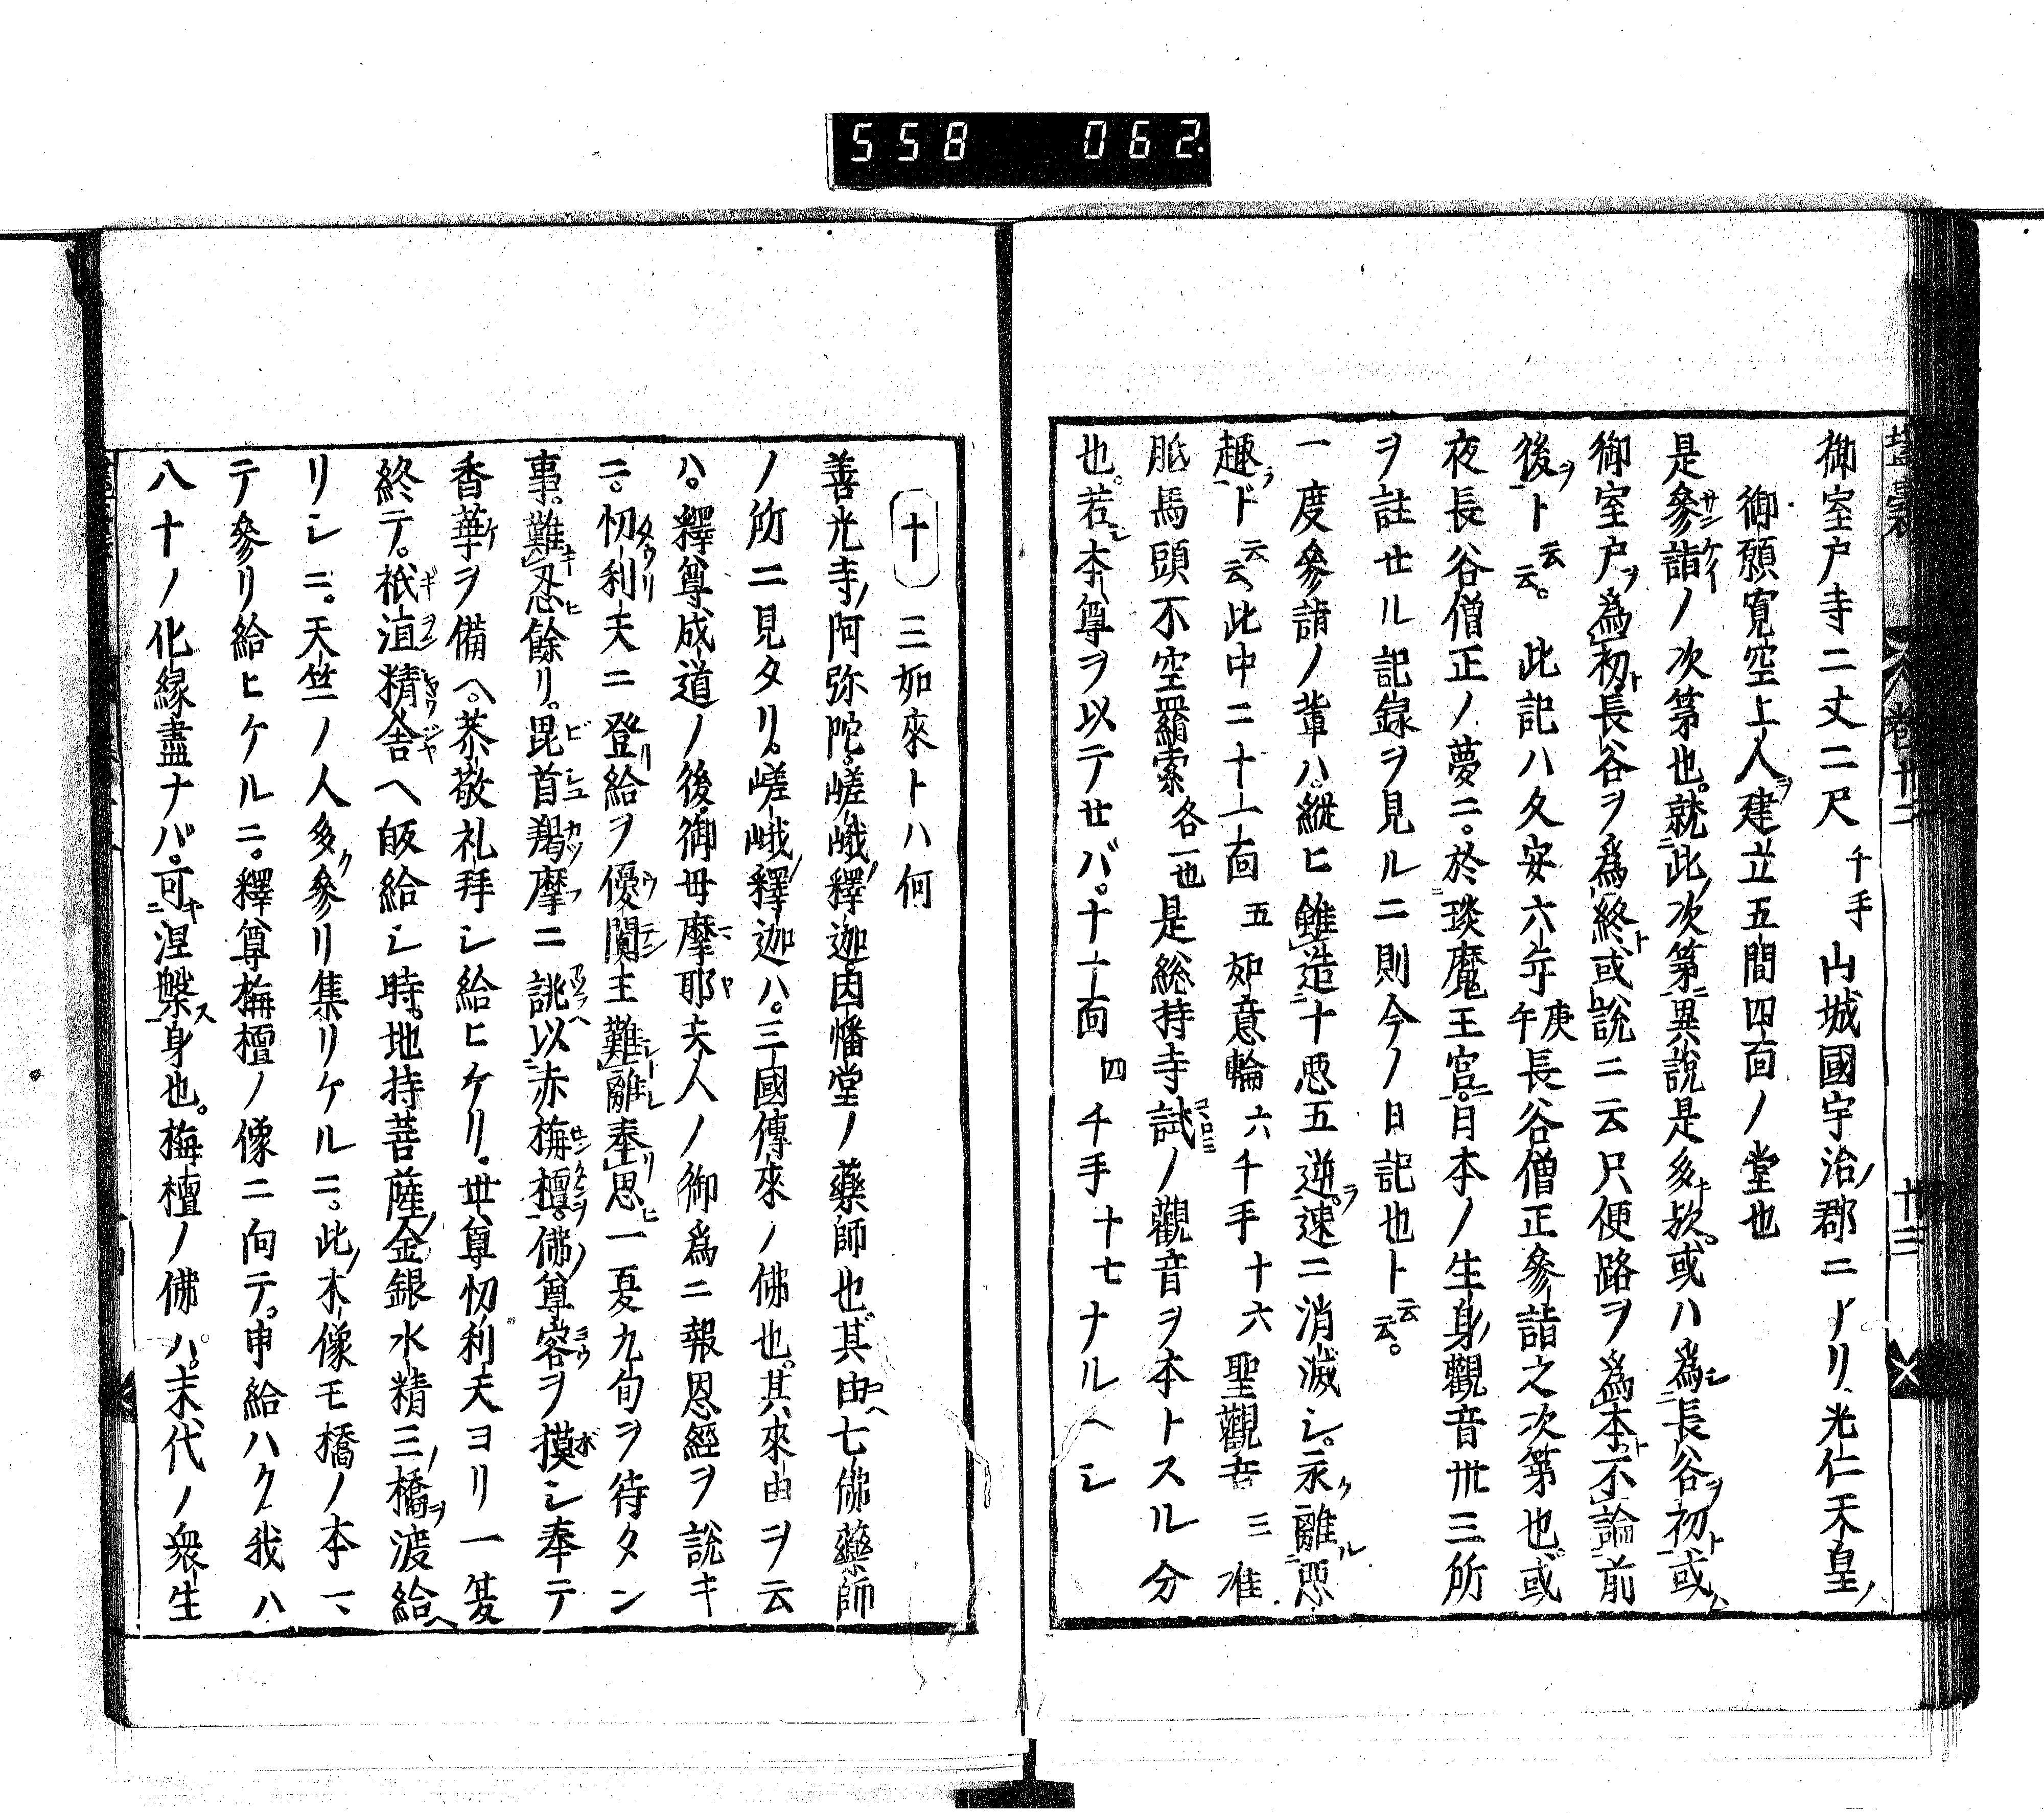 558 062.
御室戸寺二丈二尺 千手 山城國宇治ノ郡ニアリ光仁天皇ノ
御願寛空上人建ヲ立五間四面ノ堂也
是參詣サンケイノ次第也。就ニ此ノ次第ニ異說是多キ歟。或ハ爲シニ長谷ヲ初ト或ハ
御室戸ヲ爲初ト長谷ヲ爲終ト或說ニ云尺便路ヲ爲本ト不論前
後ヲト云云。此記ハ久安六年庚午長谷僧正參詣之次第也。或
夜長谷僧正ノ夢ニ。於ニ琰魔王宮ニ。日本ノ生身ノ觀音丗三所
ヲ註セル記録ヲ見ルニ則今ノ日記也ト云云。
一度參詣ノ輩ハ。縱ヒ雖造ニ十惡五逆ヲ速ニ消滅シ。永ク離ルニ惡
趣ヲド云云此中ニ十一面 五 如意輪 六 千手 十六 聖觀音 三 准
胝馬頭不空羂索 各一也 是総持寺試コヽロミノ觀音ヲ本トスル分
也。若シ本尊ヲ以テセバ。十一面 四 千手 十七 ナルヘシ
十 三如來トハ何
善光寺ノ阿弥陀。嵯峨ノ釋迦。因幡堂ノ藥師也。其由ヘ七佛藥師
ノ所ニ見タリ。嵯峨ノ釋迦ハ。三國傳來ノ佛也。其來由ヲ云
ハ。釋尊成道ノ後。御母摩耶マヤ夫人ノ御爲ニ報恩經ヲ說キ
ニ。忉利タウリ夫ニ登リ給ヲ優闐ウテン主難レ離レ奉リ思ヒ一夏九旬ヲ待タン
事。難キ忍ヒ餘リ。毘首羯摩ビシュカツマニ誂アツラヘ以ニ赤栴檀センタンヲ。佛ノ尊容ヨウヲ摸ボシ奉テ
香華ケヲ備ヘ。恭敬礼拜シ給ヒケリ。丗尊忉利天ヨリ一夏
終テ。祇洹精舍ギヲンシャウジャヘ皈給シ時。地持菩薩。金銀水精ノ三橋ヲ渡給ヘ
リシニ。天竺ノ人多ク參リ集リケルニ。此ノ木像モ橋ノ本マ
テ參リ給ヒケルニ。釋尊栴檀ノ像ニ向テ。申給ハク我ハ
八十ノ化緣盡ナバ。可キニ涅槃ス身也。栴檀ノ佛ハ。末代ノ衆生